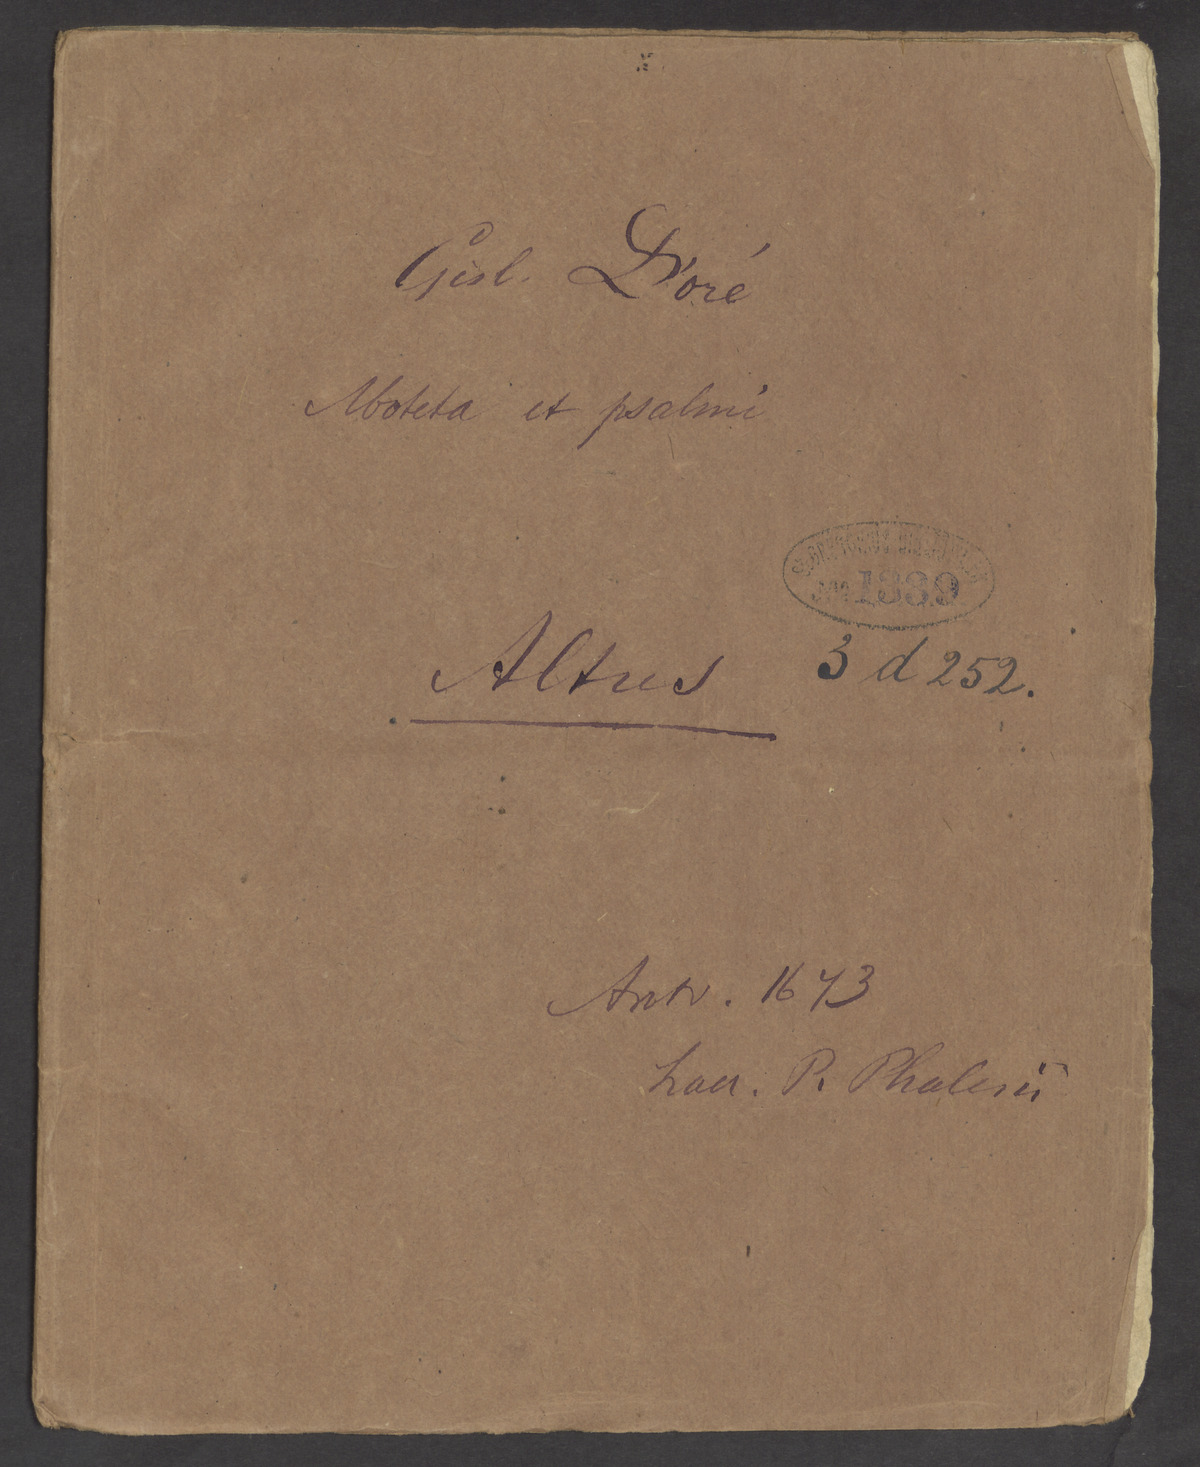 Gisl. D'oré
Moteta et psalmi
1339
Altus
3 d 252.
Antv. 1673
haer. P. Phalesii